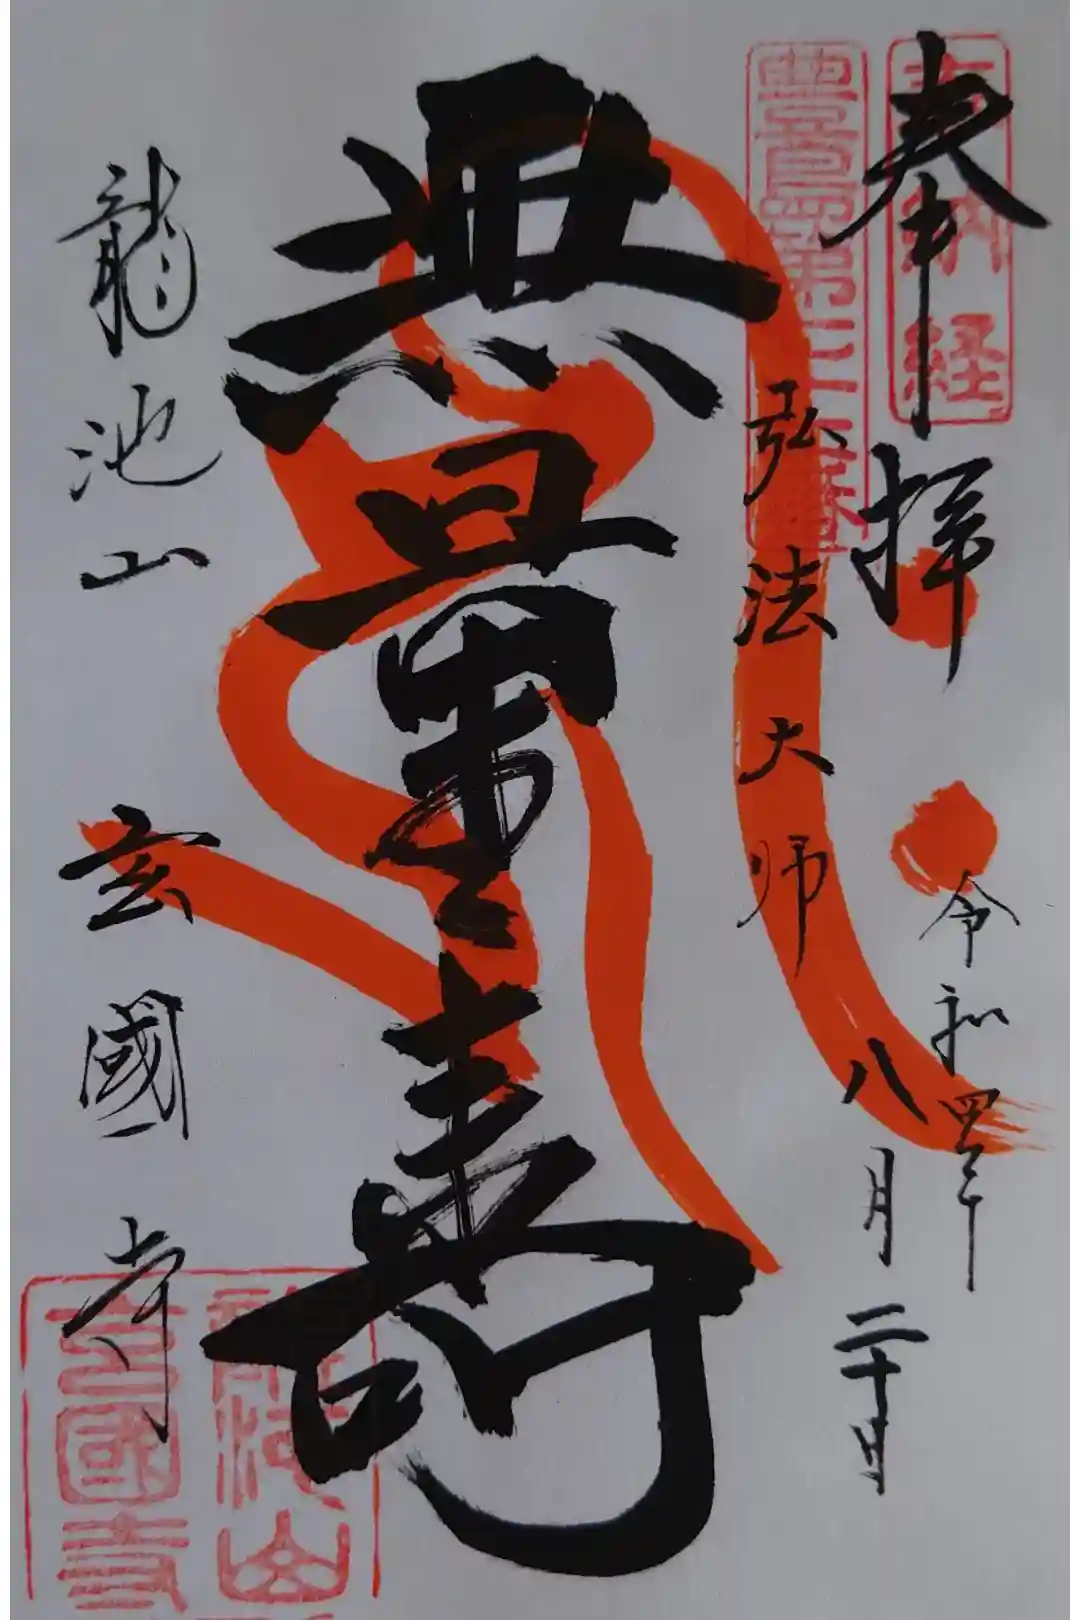 奉拝
奉納経
令和四年
八月二十日
豊島第三三番
弘法大師
無量寿
龍池山
玄國寺
龍池山
玄國寺